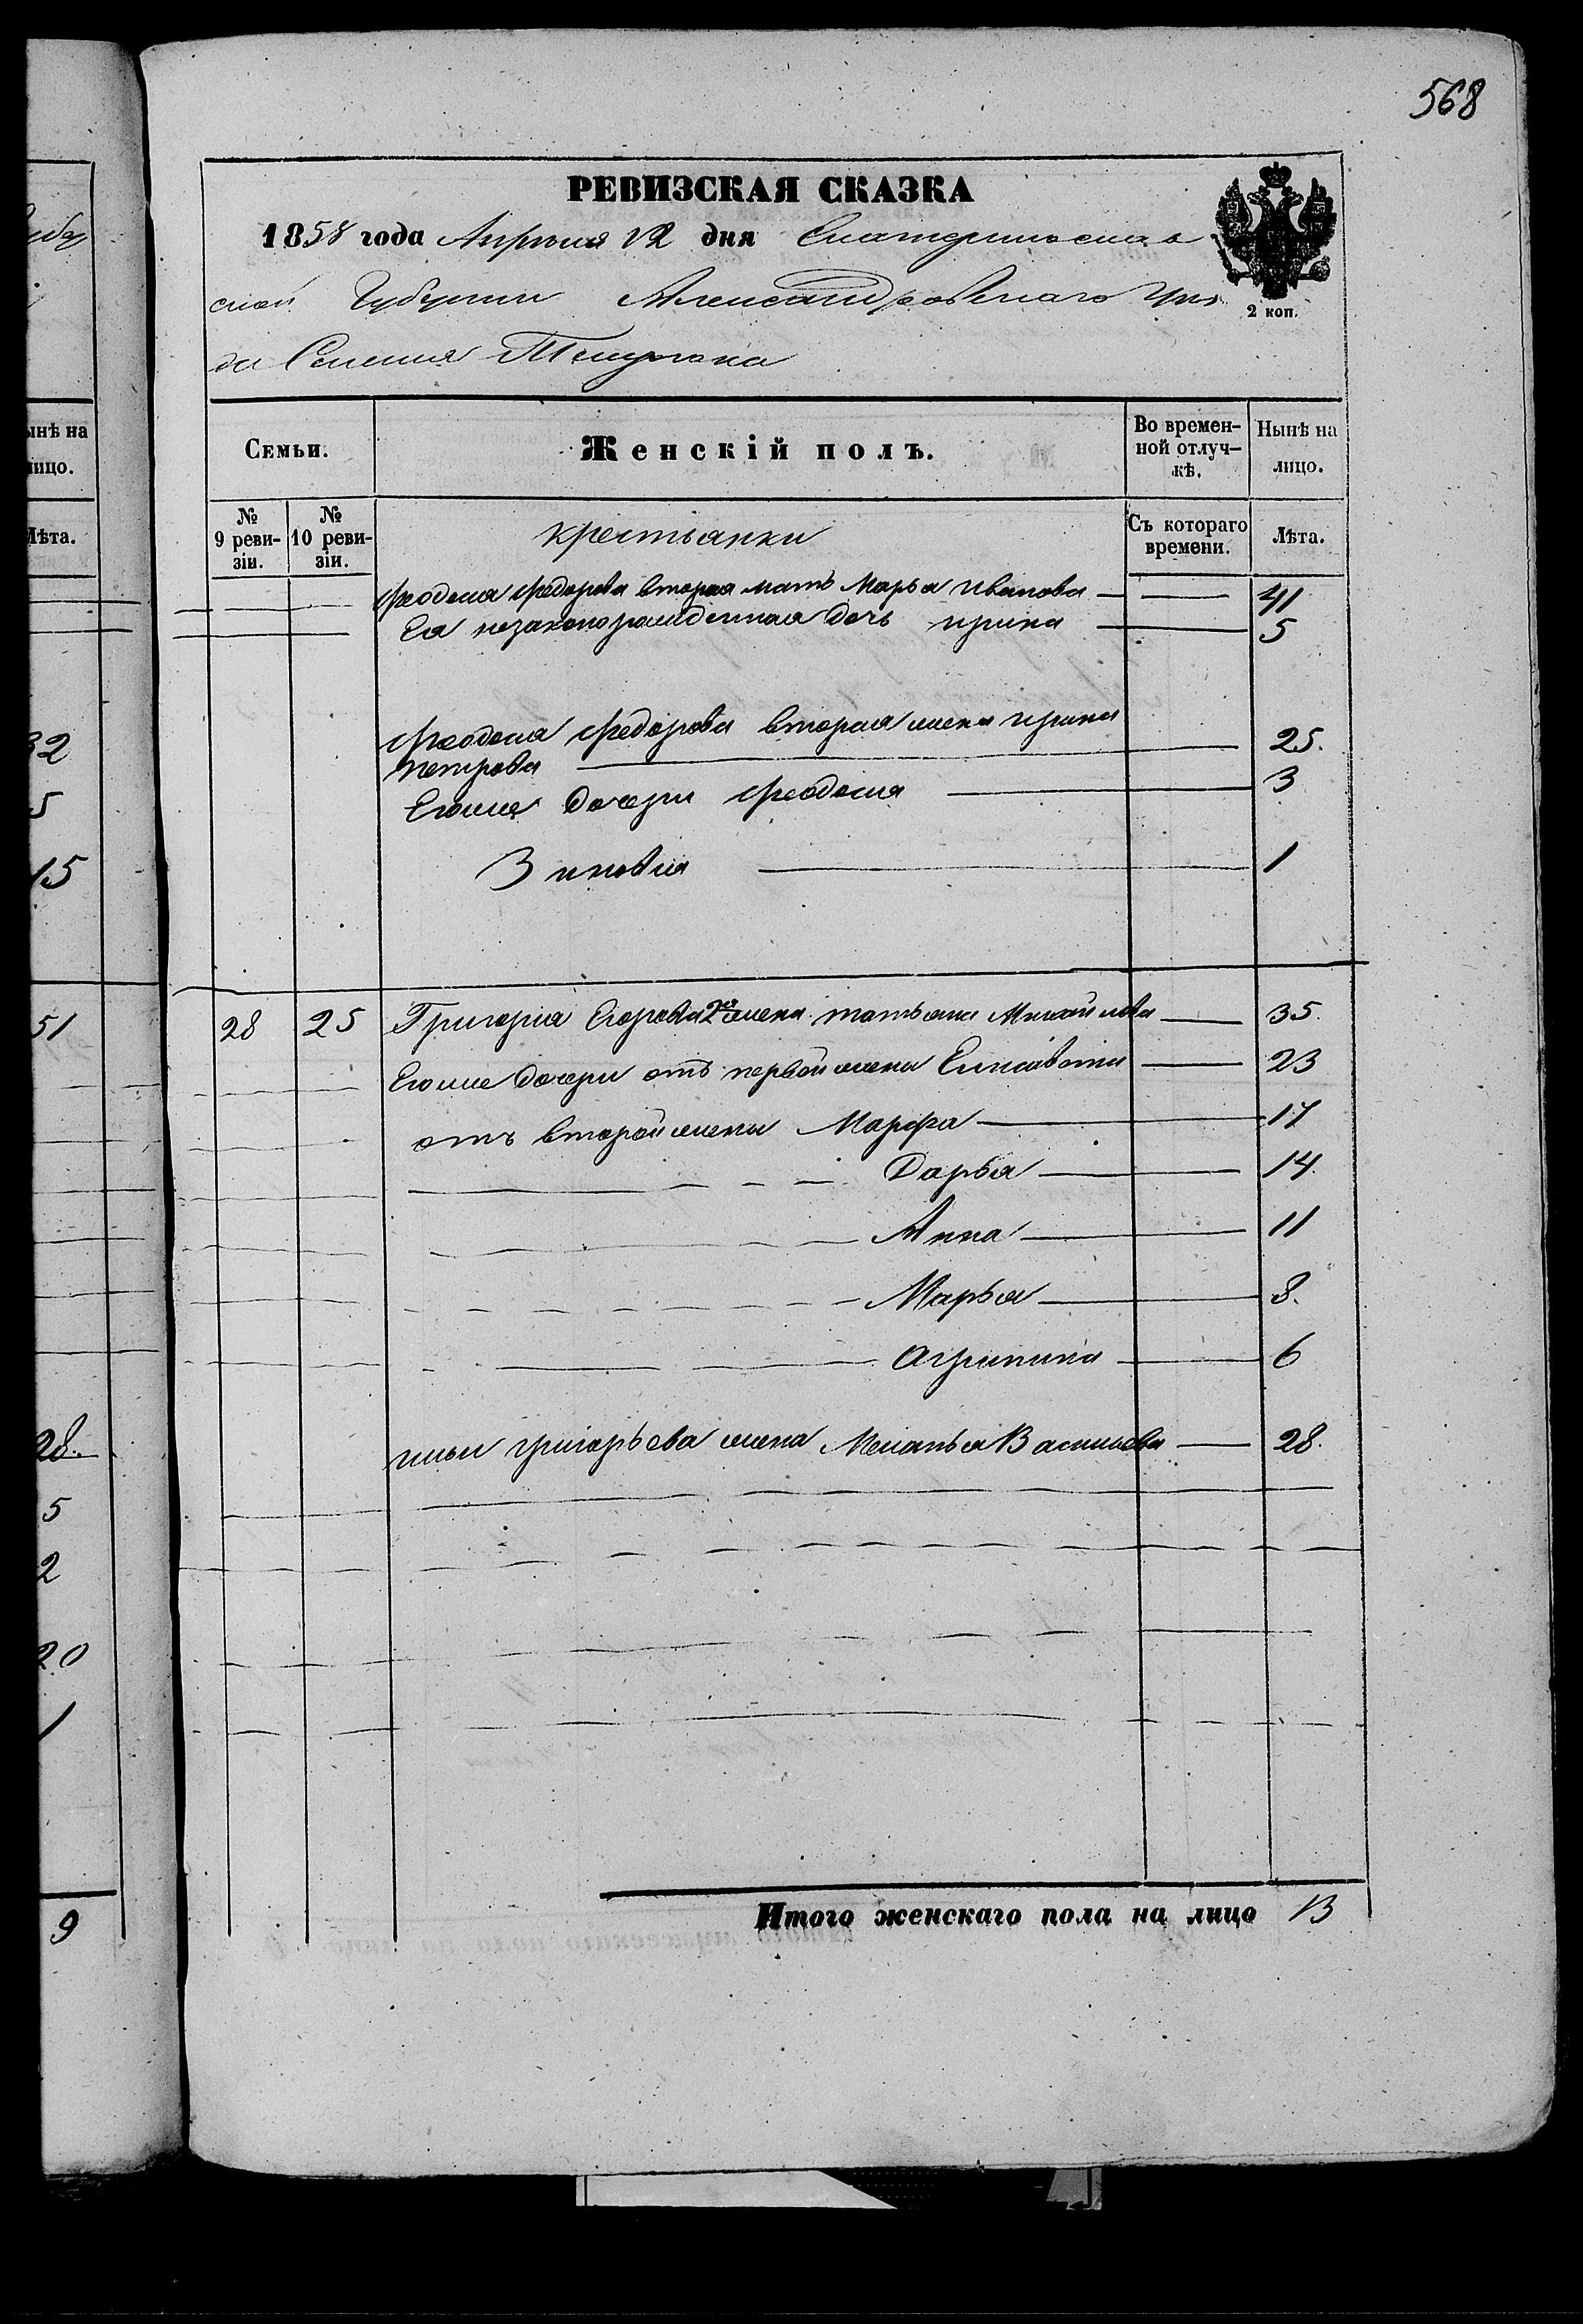 568
РЕВИЗСКАЯ СКАЗКА
1858 года Апреля 12 дня Екатеринослав
ской Губернии Александровскаго Уез
да Селения
2 коп.
ынѣ на
лицо.
Лѣта.
32
5
15
51
28.
5
2
20
1
9
Семьи.
Женскій полъ.
Во времен-
ной отлуч-
кѣ.
Нынѣ на
лицо.
№
9 реви-
зіи.
№
10 реви-
зіи.
крестьянки
Съ котораго
времени.
Лѣта.
Феодосия Федорова вторая мать Марья Иванова 41
Ея незаконорожденная дочь ирина 5
Феодосия Федорова вторая жена ирина
Петрова 25.
Егоже дочери Феодосия 3
Зиновия 1
28 25 Григория Егорова 2ая жена татьяна Михайлова 35.
Егоже дочери отъ первой жены Елисавета 23
отъ второй жены Марфа 17
Дарья 14.
Анна 11
Марья 8.
Агрипина 6
ильи григорьева жена Меланья Васильева 28.
Итого женскаго пола на лицо 13